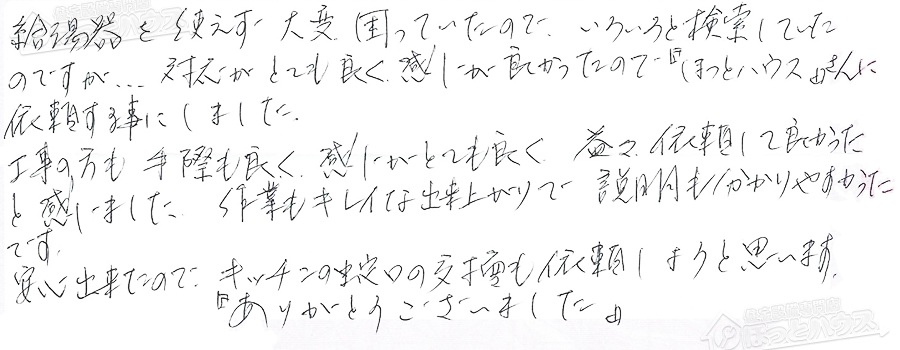 給湯器を使えず大変困っていたので、いろいろと検索していた
のですが… 対応がとても良く感じが良かったので『ほっとハウス』さんに
依頼する事にしました。
工事の方も手際も良く、感じがとても良く、益々依頼して良かった
と感じました。作業もキレイな出来上がりで説明も分かりやすかった
です。
安心出来たので、キッチンの蛇口の交換も依頼しようと思います。
『ありがとうございました』
住宅設備専門店
ほっとハウス